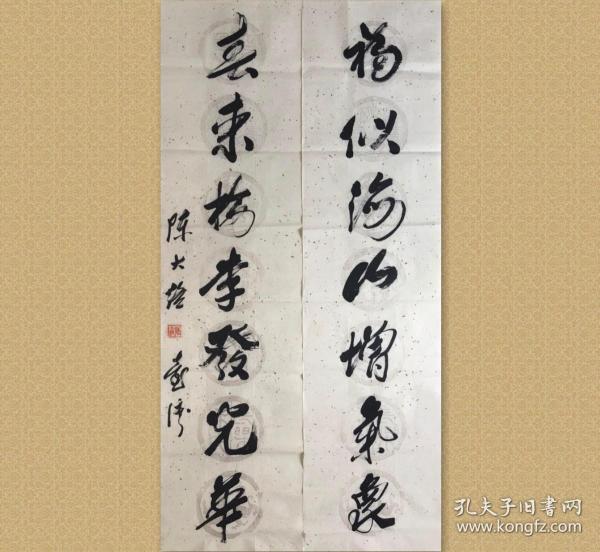 福似海山增氣象
春來桃李發光華
陳大絡 臺灣
孔夫子旧书网
www.kongfz.com